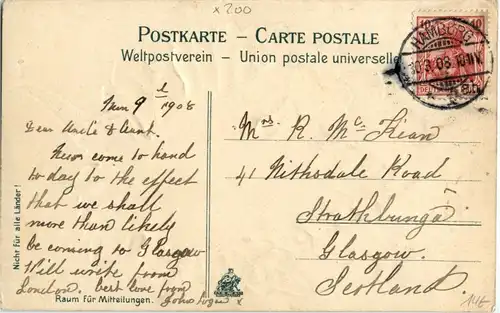 x200
POSTKARTE – CARTE POSTALE
Weltpostverein – Union postale universelle
10 10
HAMBURG
10.3.08.10-11V.
9 1908
Dear Uncle & Aunt.
News come to hand
to day to the effect
that we shall
more than likely
be coming to Glasgow
Will write from
London. best love from
John Logan x
Mrs R. Mc Kean
41 Nithsdale Road
Strathbungo
Glasgow.
Scotland.
Nicht für alle Länder!
Raum für Mitteilungen.